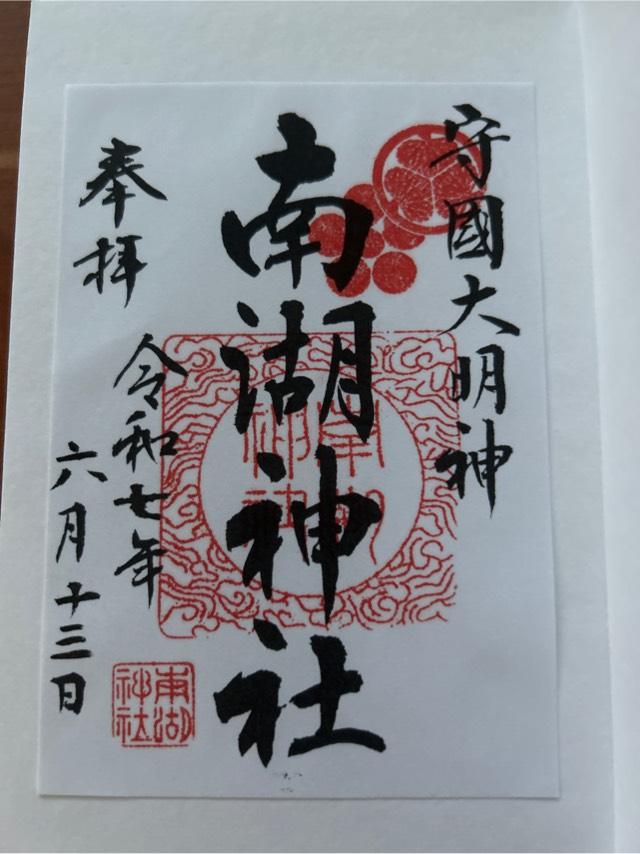 守國大明神
南湖神社
奉拝
令和七年
六月十三日
南湖
神社
南湖
神社